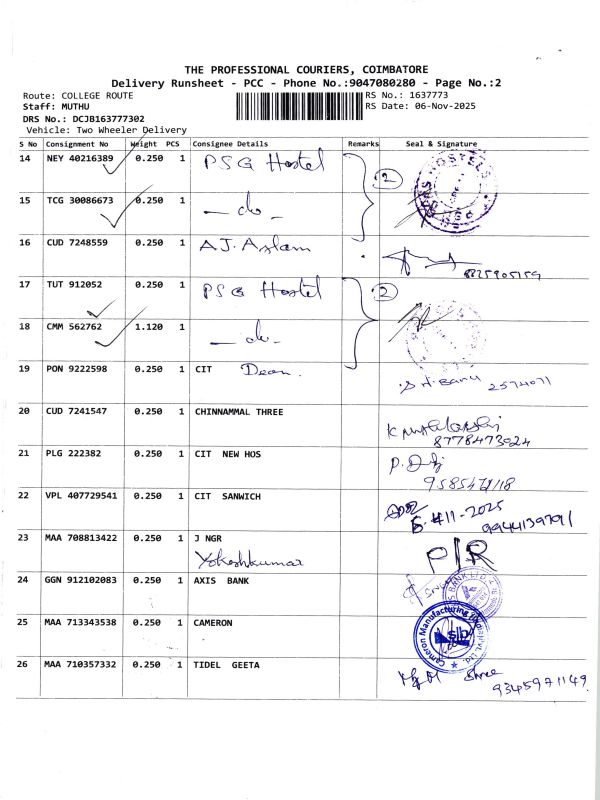 THE PROFESSIONAL COURIERS, COIMBATORE
Delivery Runsheet - PCC - Phone No.:9047080280 - Page No.:2
Route: COLLEGE ROUTE RS No.: 1637773
Staff: MUTHU RS Date: 06-Nov-2025
DRS No.: DCJB163777302
Vehicle: Two Wheeler Delivery
S No Consignment No Weight PCS Consignee Details Remarks Seal & Signature
14 NEY 40216389 0.250 1 PSG Hostel 2
15 TCG 30086673 0.250 1 - do -
16 CUD 7248559 0.250 1 A.J. Aslam 8825905759
17 TUT 912052 0.250 1 PSG Hostel 2
18 CMM 562762 1.120 1 - do -
19 PON 9222598 0.250 1 CIT Dean. S.H. Banu 2574071
20 CUD 7241547 0.250 1 CHINNAMMAL THREE
8778473024
21 PLG 222382 0.250 1 CIT NEW HOS
9585471118
22 VPL 407729541 0.250 1 CIT SANWICH
6-11-2025
9944139791
23 MAA 708813422 0.250 1 J NGR P/R
Yokeshkumar
24 GGN 912102083 0.250 1 AXIS BANK
25 MAA 713343538 0.250 1 CAMERON Cameron Manufacturing (India) Pvt. Ltd. slb
26 MAA 710357332 0.250 1 TIDEL GEETA Shree
9345971149